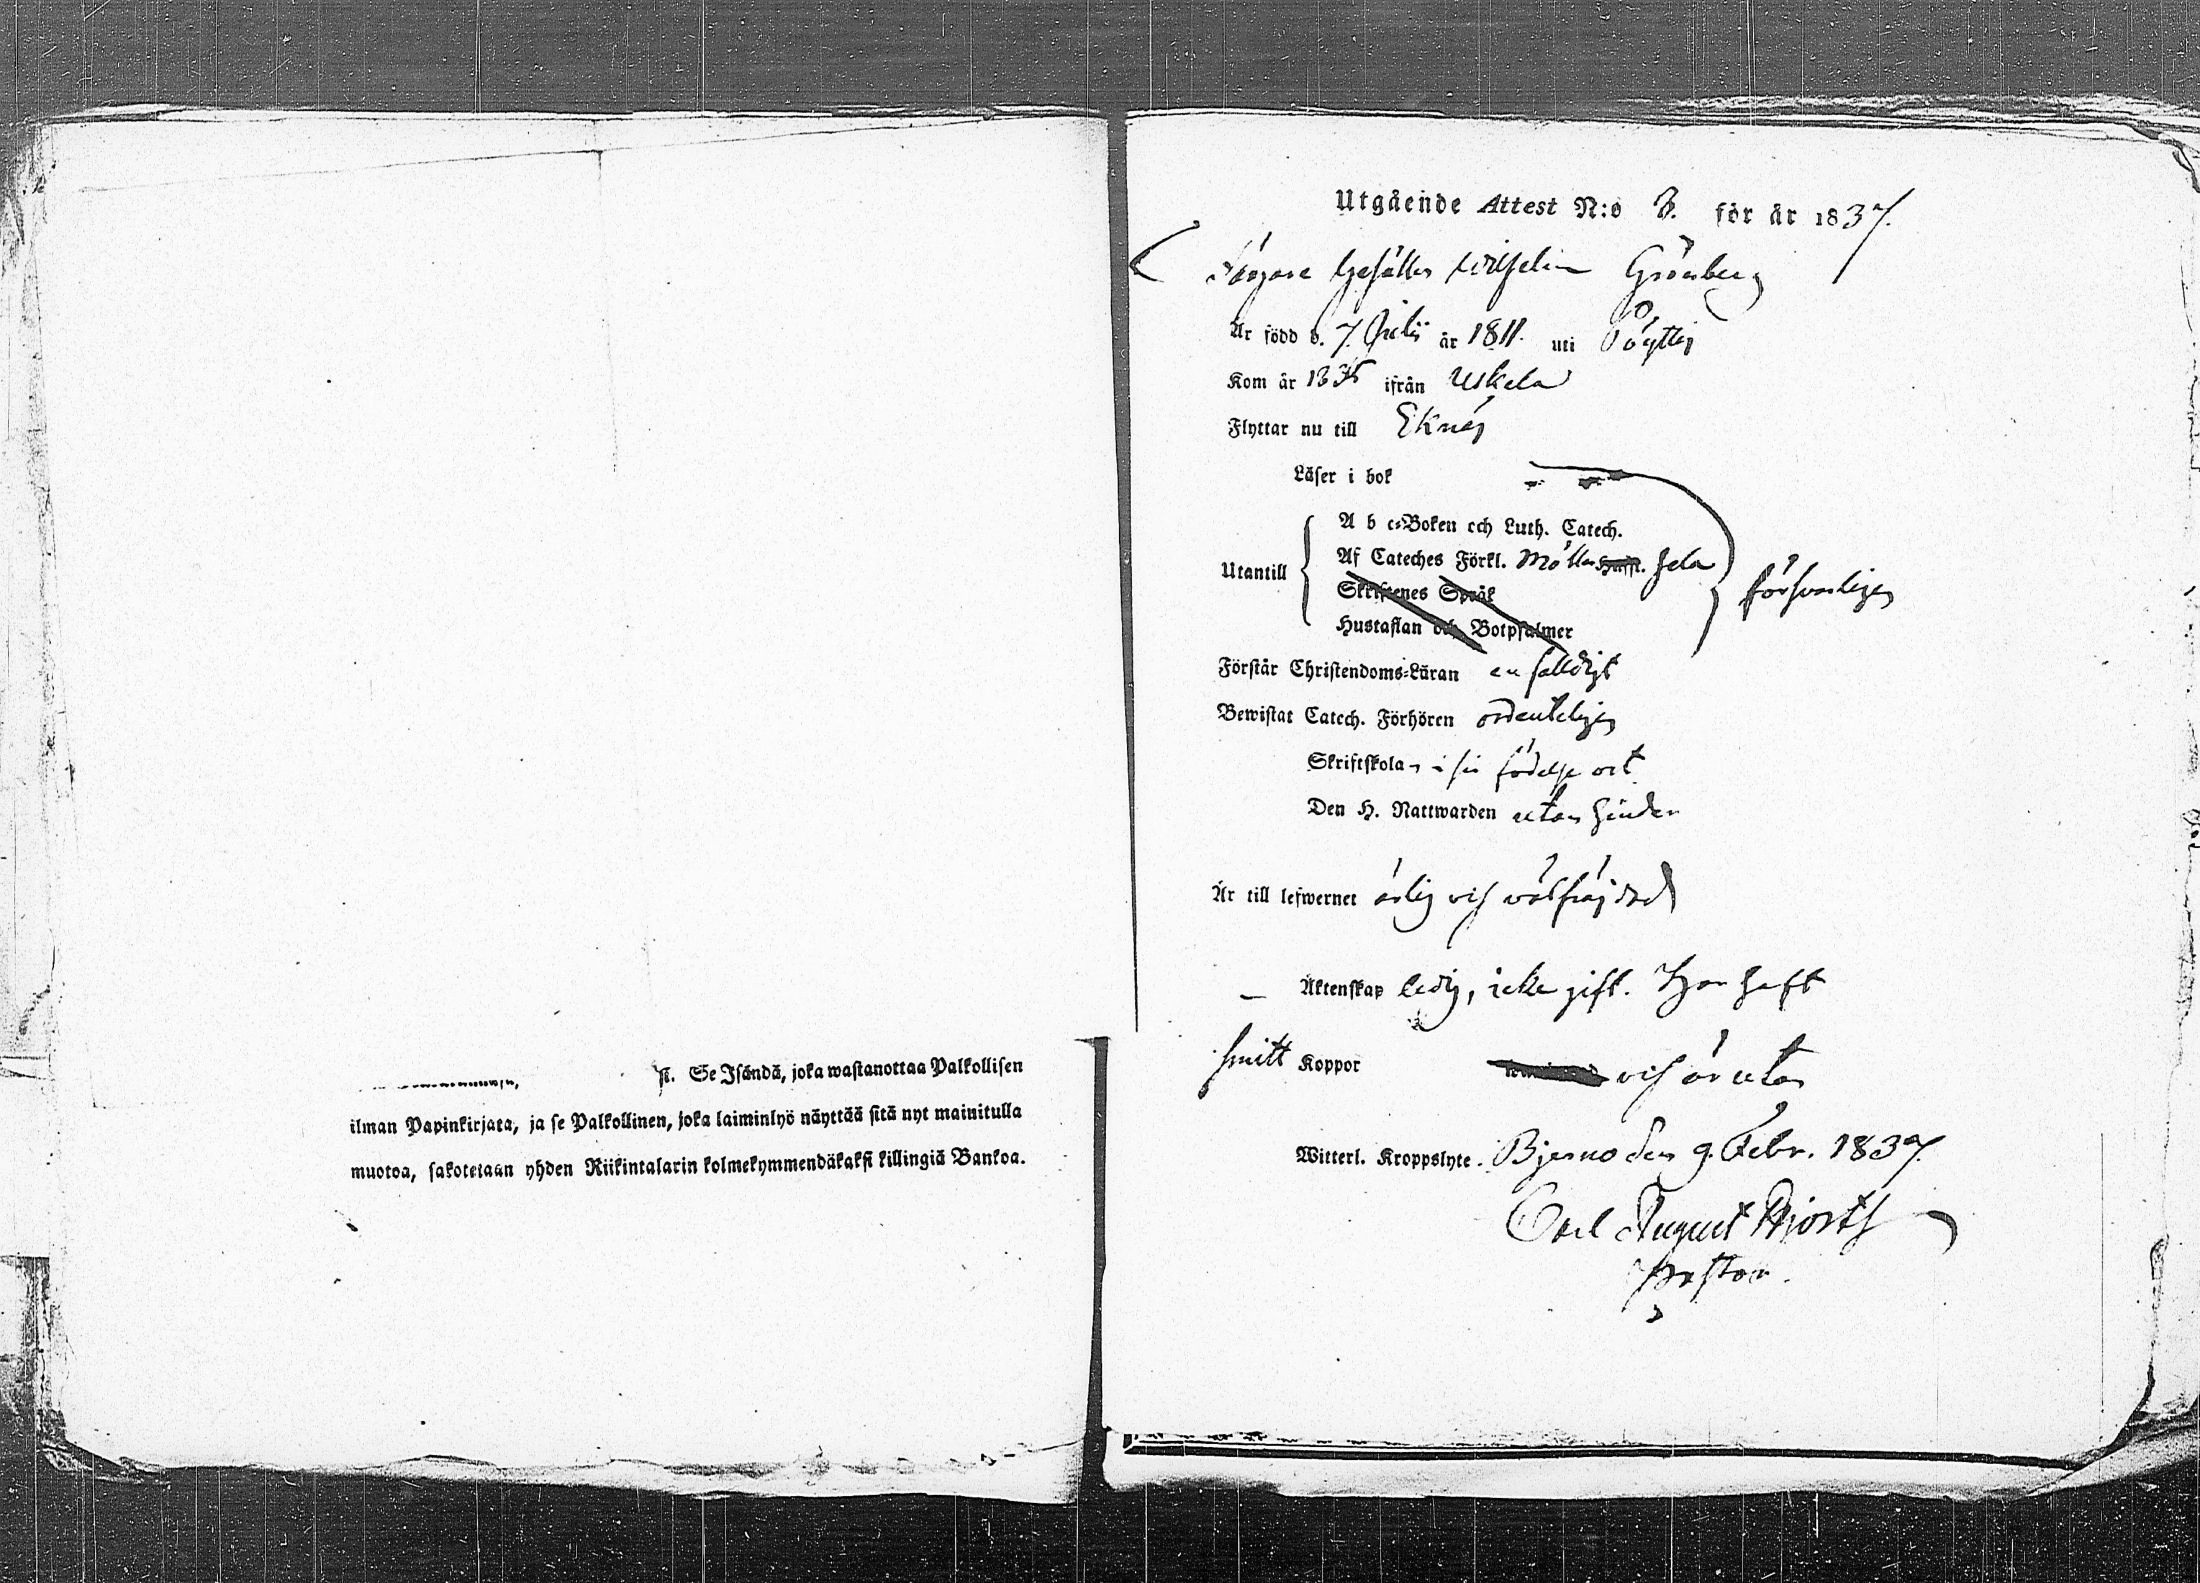 st. Se Isändä, joka wastanottaa Palkollisen
ilman Papinkirjata, ja se Palkollinen, joka laiminlyö näyttää sitä nyt mainitulla
muotoa, sakotetaan yhden Riikintalarin kolmekymmendäkaksi killingiä Bankoa.
Utgående Attest N:o 8. för år 1837.
Färgare Gesällen Wilhelm Grönberg
Är född d. 7. Julii år 1811. uti Pöyttis
Kom år 183 ifrån Uskela
Flyttar nu till Eknäs
Läser i bok
Utantill
A b c-Boken och Luth. Catech.
Af Cateches Förkl. Möllers hela
Skriftenes Språk
Hustaflan och Botpsalmer
försvarligen
Förstår Christendoms-Läran enfalldigt
Bewistat Catech. Förhören ordenteligen
Skriftskolan i sin födelse ort
Den H. Nattwarden utan hinder
Är till lefwernet ärlig och välfräjdad
Äktenskap ledig, icke gift. Har haft
Koppor och är utan
Witterl. Kroppslyte. Bjerno den 9. Febr. 1837.
Carl August Hjorth
Pastor.